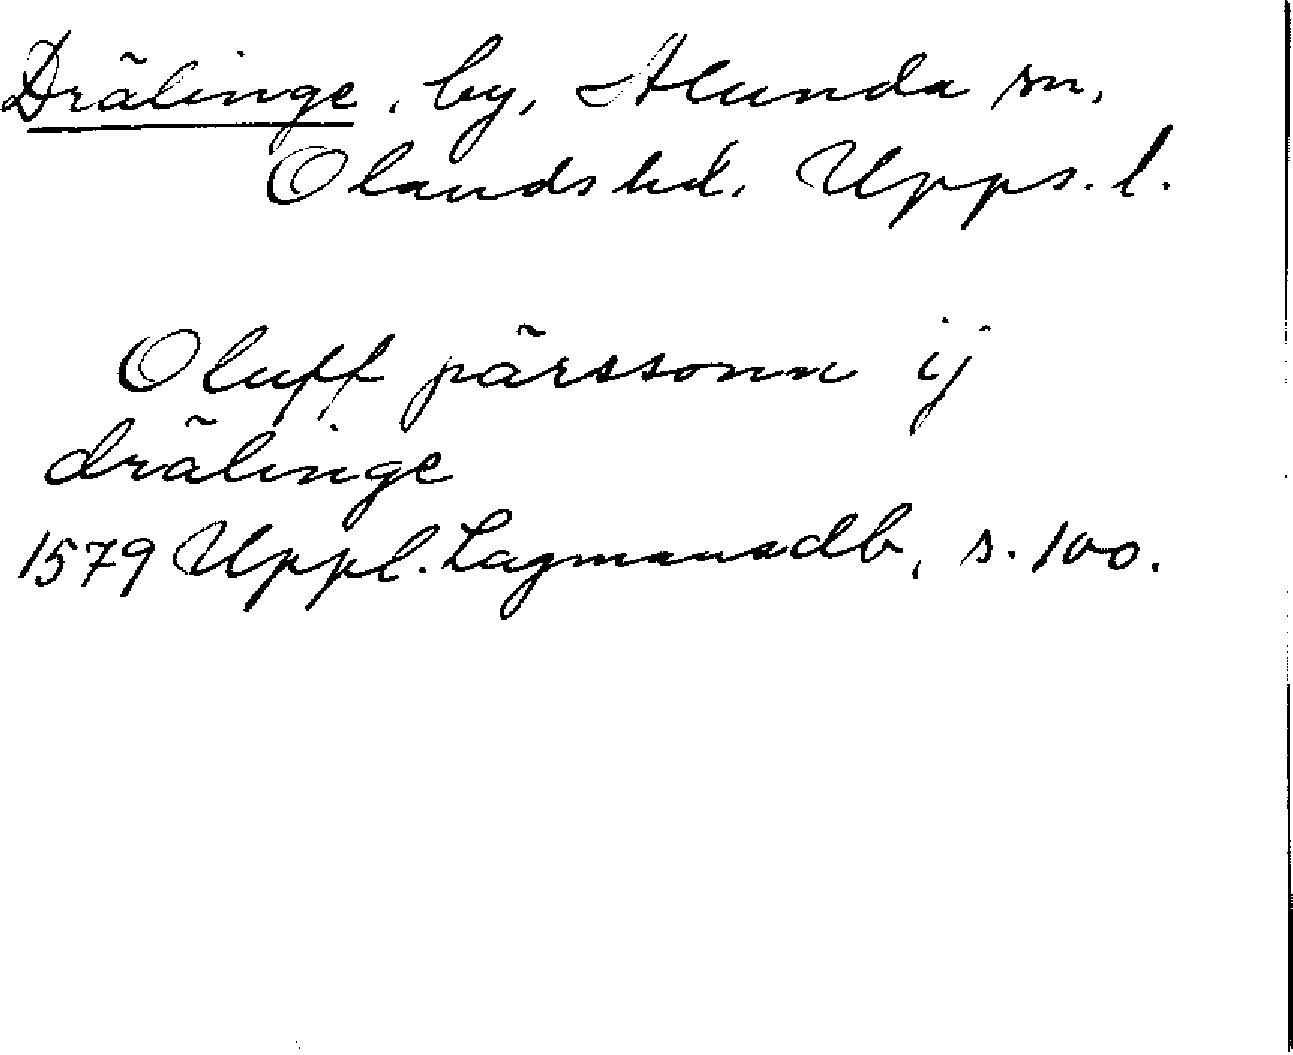 Drälinge, by, Alunda sn,
Olands hd. Upps. l.
Oluff pärssonn ij
drälinge
1579 Uppl. Lagmansdb, s. 100.